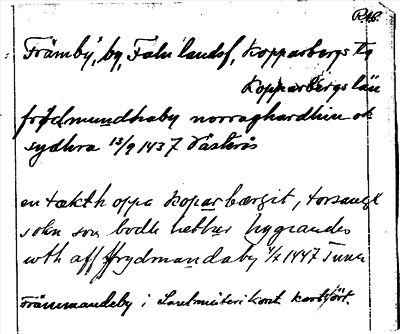 RAB.
Främby, by, Falu landsf, Kopparbergs tg
Kopparbergs län
frydmundhaby norraghardhin ok
sydhra 13/9 1437 Västerås
en tækth oppa koparbærgit, torsangs
sokn som bodh
wth aff ffrydmandaby 1447
Främmandeby i Lantmäterikont kartfört.